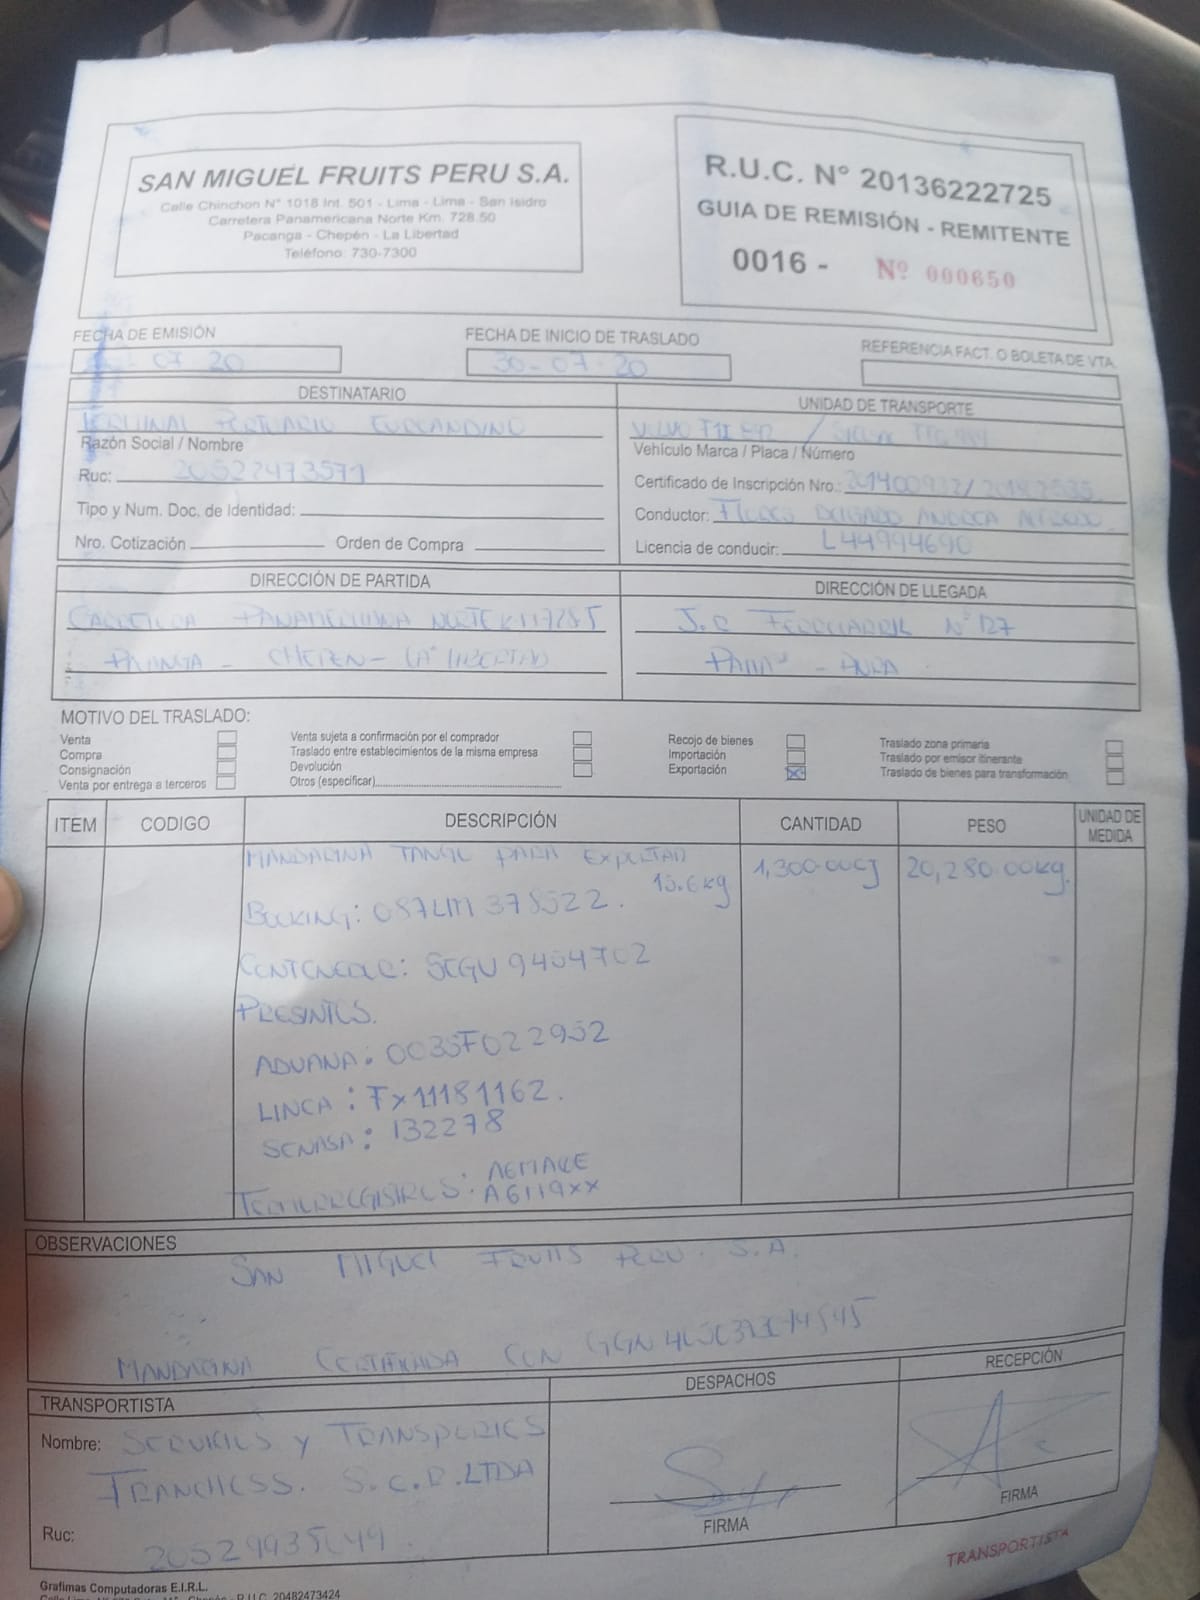 SAN MIGUEL FRUITS PERU S.A.
Calle Chinchon N° 1018 Int. 501 - Lima - Lima - San Isidro
Carretera Panamericana Norte Km. 728.50
Pacanga - Chepén - La Libertad
Teléfono: 730-7300
R.U.C. N° 20136222725
GUIA DE REMISIÓN - REMITENTE
0016 - Nº 000650
FECHA DE EMISIÓN
07 20
FECHA DE INICIO DE TRASLADO
30-07-20
REFERENCIA FACT. O BOLETA DE VTA.
DESTINATARIO
TERMINAL PORTUARIO EUROANDINO
Razón Social / Nombre
Ruc: 20522473571
Tipo y Num. Doc. de Identidad:
Nro. Cotización Orden de Compra
UNIDAD DE TRANSPORTE
VOLVO
Vehículo Marca / Placa / Número
Certificado de Inscripción Nro.:
Conductor: FLORES DELGADO ANDREA ALFREDO
Licencia de conducir: L44994690
DIRECCIÓN DE PARTIDA
CARRETERA PANAMERICANA NORTE
CHEPEN - LA LIBERTAD
DIRECCIÓN DE LLEGADA
FERROCARRIL N° 127
MOTIVO DEL TRASLADO:
Venta
Compra
Consignación
Venta por entrega a terceros
Venta sujeta a confirmación por el comprador
Traslado entre establecimientos de la misma empresa
Devolución
Otros (especificar)
Recojo de bienes
Importación
Exportación X
Traslado zona primaria
Traslado por emisor itinerante
Traslado de bienes para transformación
ITEM CODIGO DESCRIPCIÓN CANTIDAD PESO UNIDAD DE MEDIDA
MANDARINA PARA 1,300.00CJ 20,280.00kg.
15.6kg
BOOKING: 087LM378522.
CONTENEDOR: SEGU 9454702
PRESINTOS.
ADUANA: 0035F022952
LINEA: Fx11181162.
SENASA: 132278
TERMOREGISTROS: A6119xx
OBSERVACIONES
SAN MIGUEL FRUITS PERU. S.A.
MANDARINA CERTIFICADA CON GGN
TRANSPORTISTA
Nombre: SERVICIOS y TRANSPORTES
S.C.R.LTDA
Ruc:
DESPACHOS
FIRMA
RECEPCIÓN
FIRMA
TRANSPORTISTA
Grafimas Computadoras E.I.R.L.
R.U.C. 20482473424